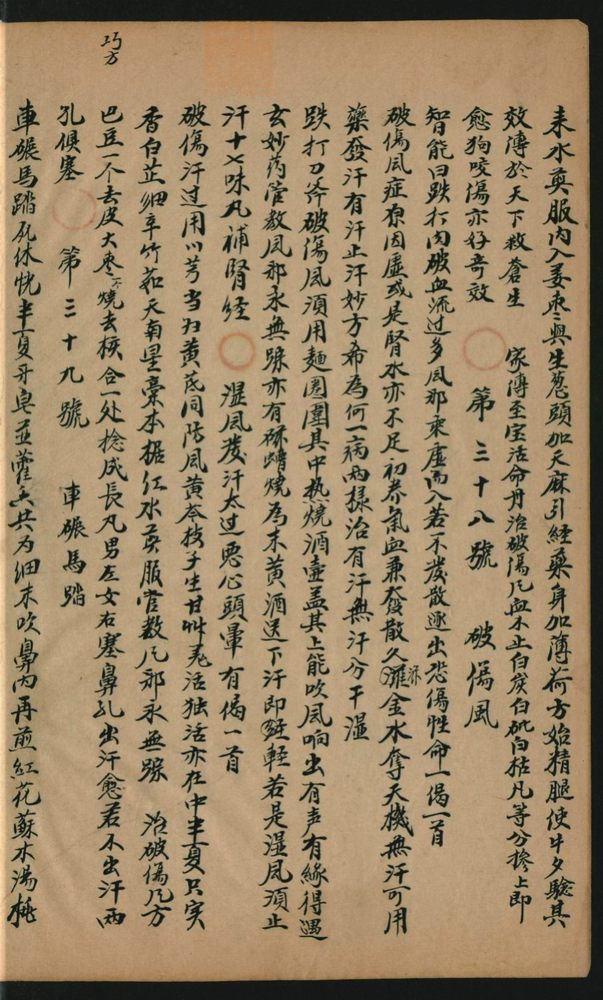 耒水煎服内入姜枣與生葱頭如天麻引经藥身加薄荷方始精腿使牛夕騐其
效傳於天下救蒼生　家傳至宝活命丹治破傷凡血不止白炭白矾白枯凡等分摻上即
愈狗咬傷亦好奇效　第三十八號　破傷風
智能曰跌打肉破血流过多風邪乘虛而入若不發散逐出恐傷性命一偈一首
破傷風症原因虛或是腎水亦不足初养氣血兼發散久𣸣金水奪天機無汗可用
藥發汗有汗止汗妙方希為何一病兩樣治有汗無汗分干濕
跌打刀斧破傷風須用麵圈圍其中热燒酒壶盖其上能吹風响出有声有緣得遇
玄妙药管教風邪永無踪亦有蛴螬燒為末黄酒送下汗即輕若是濕風須止
汗十七味丸補腎经　濕風發汗太过惡心頭暈有偈一首
破傷汗过用川芎當归黄芪同防風黄芩枝子生甘艸羌活独活亦在中半夏只实
香白芷細辛竹茹天南星藁本桔红水煎服管教凡邪永無踪　治破傷凡方
巴豆一个去皮大枣一个燒去核合一处捻成長丸男左女右塞鼻孔出汗愈若不出汗兩
孔俱塞　第三十九號　車碾馬踏
車碾馬踏死休慌半夏牙皂並藿香共为細末吹鼻内再煎紅花蘇木湯桃
巧方